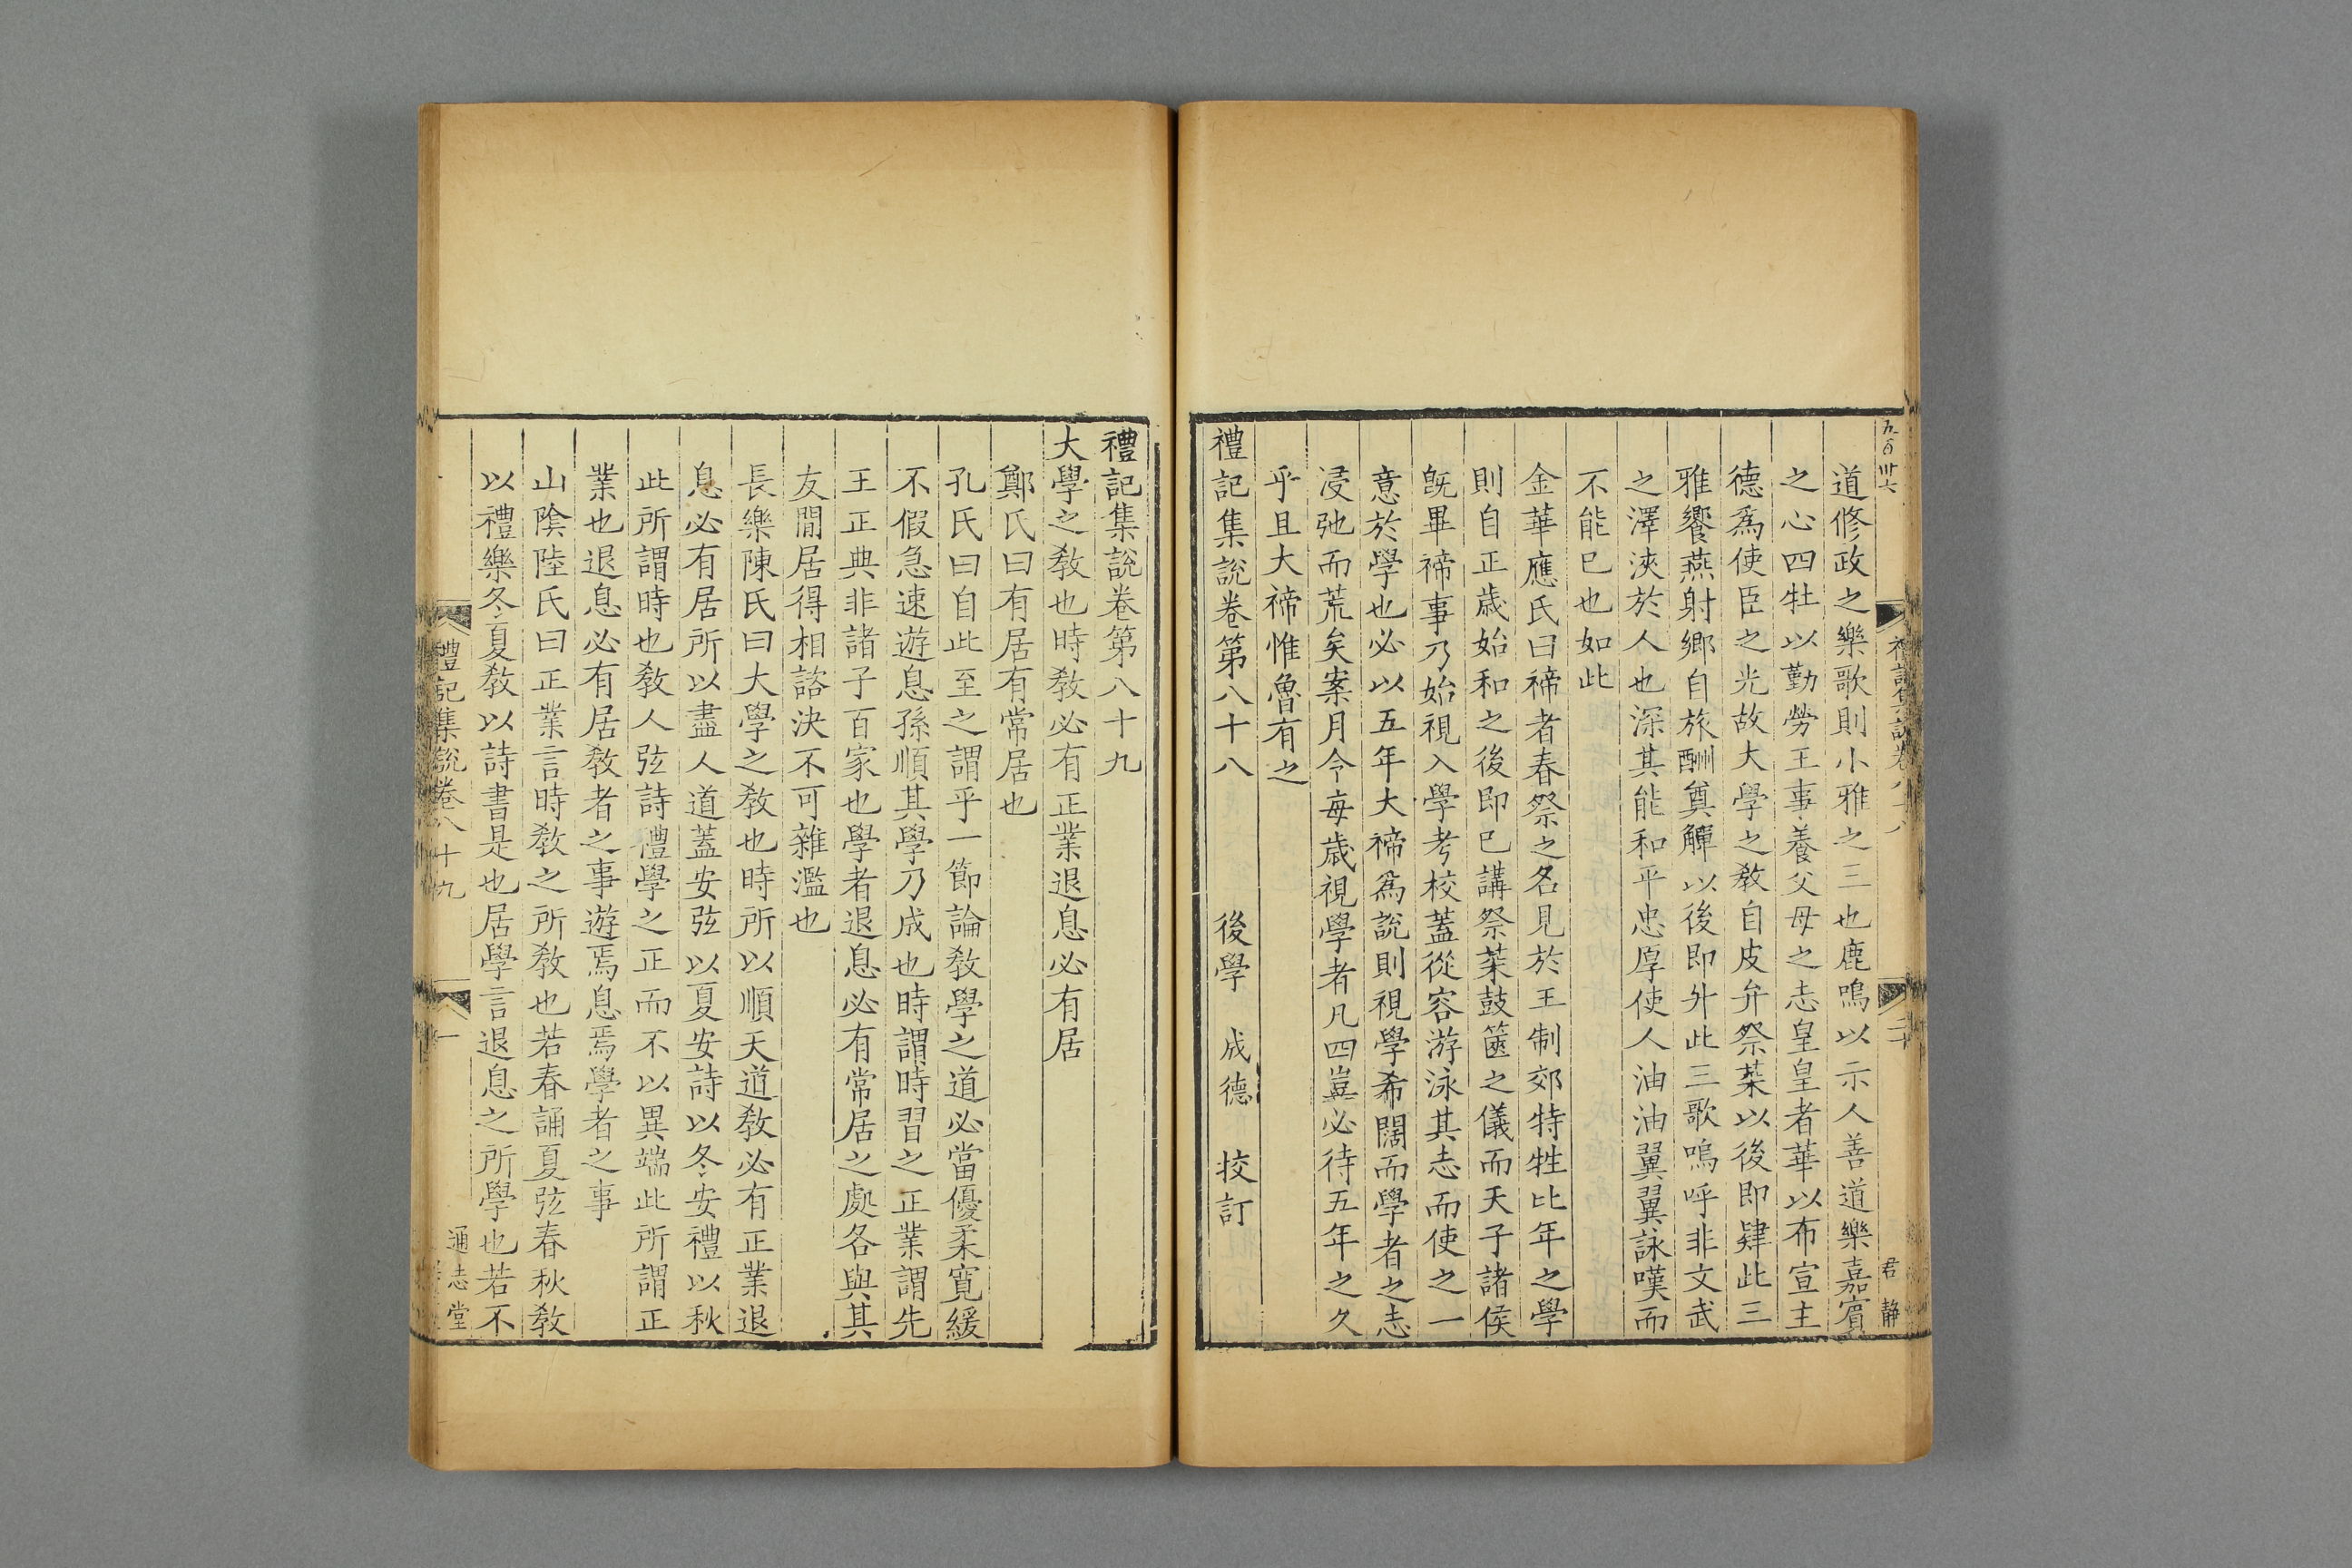 五百卅六
禮記集說卷八十八
二十
君靜
道修政之樂歌則小雅之三也鹿鳴以示人善道樂嘉賓
之心四牡以勤勞王事養父母之志皇皇者華以布宣主
德為使臣之光故大學之敎自皮弁祭菜以後即肄此三
雅饗燕射鄉自旅酬奠觶以後即升此三歌嗚呼非文武
之澤浹於人也深其能和平忠厚使人油油翼翼詠嘆而
不能已也如此
金華應氏曰禘者春祭之名見於王制郊特牲比年之學
則自正歲始和之後即已講祭菜鼓篋之儀而天子諸侯
旣畢禘事乃始視入學考校蓋從容游泳其志而使之一
意於學也必以五年大禘為說則視學希闊而學者之志
浸弛而荒矣案月令每歲視學者凡四豈必待五年之久
乎且大禘惟魯有之
禮記集說卷第八十八　後學　成德　挍訂
禮記集說卷第八十九
大學之敎也時敎必有正業退息必有居
鄭氏曰有居有常居也
孔氏曰自此至之謂乎一節論敎學之道必當優柔寬緩
不假急速遊息孫順其學乃成也時謂時習之正業謂先
王正典非諸子百家也學者退息必有常居之處各與其
友閒居得相諮決不可雜濫也
長樂陳氏曰大學之敎也時所以順天道敎必有正業退
息必有居所以盡人道蓋安弦以夏安詩以冬安禮以秋
此所謂時也敎人弦詩禮學之正而不以異端此所謂正
業也退息必有居敎者之事遊焉息焉學者之事
山陰陸氏曰正業言時敎之所敎也若春誦夏弦春秋敎
以禮樂冬夏敎以詩書是也居學言退息之所學也若不
禮記集說卷八十九
一
通志堂